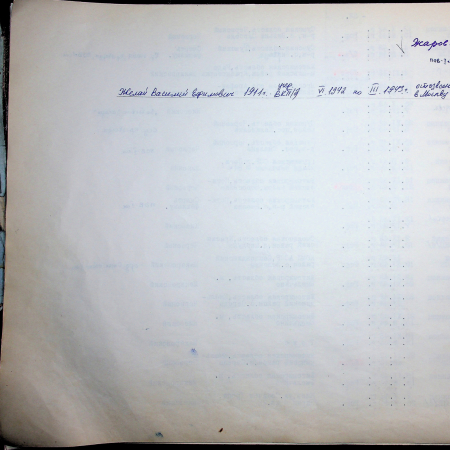 Жаров
пов-
Желай Василий Ефимович 1911г. укр ВКП/б VI 1942 по III 1943г. отозван в Москву